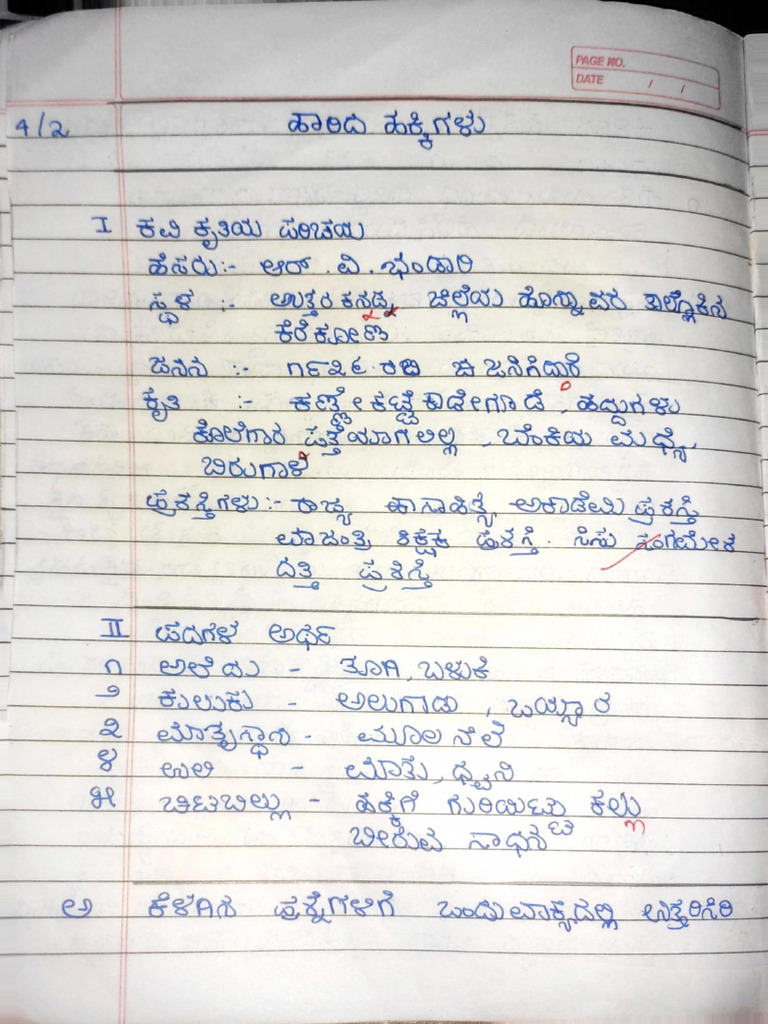 PAGE NO.
DATE / /
4/2 ಹಾರಿದ ಹಕ್ಕಿಗಳು
I ಕವಿ ಕೃತಿಯ ಪರಿಚಯ
ಹೆಸರು:- ಆರ್. ವಿ. ಭಂಡಾರಿ
ಸ್ಥಳ :- ಉತ್ತರ ಕನ್ನಡ ಜಿಲ್ಲೆಯ ಹೊನ್ನಾವರ ತಾಲ್ಲೂಕಿನ
ಕೆರೆಕೋಣ
ಜನನ :- ೧೯೩೬ ರಲ್ಲಿ ಜನಿಸಿದ್ದಾರೆ
ಕೃತಿ :- ಕಣ್ಣೇಕಟ್ಟೆ ಕಾಡೇಗೂಡೆ, ಹದ್ದುಗಳು
ಕೊಲೆಗಾರ ಪತ್ತೆಯಾಗಲಿಲ್ಲ, ಬೆಂಕಿಯ ಮಧ್ಯೆ,
ಬಿರುಗಾಳಿ
ಪ್ರಶಸ್ತಿಗಳು:- ರಾಜ್ಯ ಸಾಹಿತ್ಯ ಅಕಾಡೆಮಿ ಪ್ರಶಸ್ತಿ
ಶಿಕ್ಷಕ ಪ್ರಶಸ್ತಿ. ಸಿಸು ಸಂಗಮೇಶ
ದತ್ತಿ ಪ್ರಶಸ್ತಿ
II ಪದಗಳ ಅರ್ಥ
೧ ಅಲೆದು - ತೂಗಿ, ಬಳುಕೆ
೨ ಕುಲುಕು - ಅಲುಗಾಡು, ಒಯ್ಯಾರ
೩ ಮಾತೃಸ್ಥಾನ - ಮೂಲ ನೆಲೆ
೪ ಉಲಿ - ಮಾತು, ಧ್ವನಿ
೫ ಚಾಟಿಬಿಲ್ಲು - ಹಕ್ಕಿಗೆ ಗುರಿಯಿಟ್ಟು ಕಲ್ಲು
ಬೀರುವ ಸಾಧನ
ಅ ಕೆಳಗಿನ ಪ್ರಶ್ನೆಗಳಿಗೆ ಒಂದುವಾಕ್ಯದಲ್ಲಿ ಉತ್ತರಿಸಿರಿ